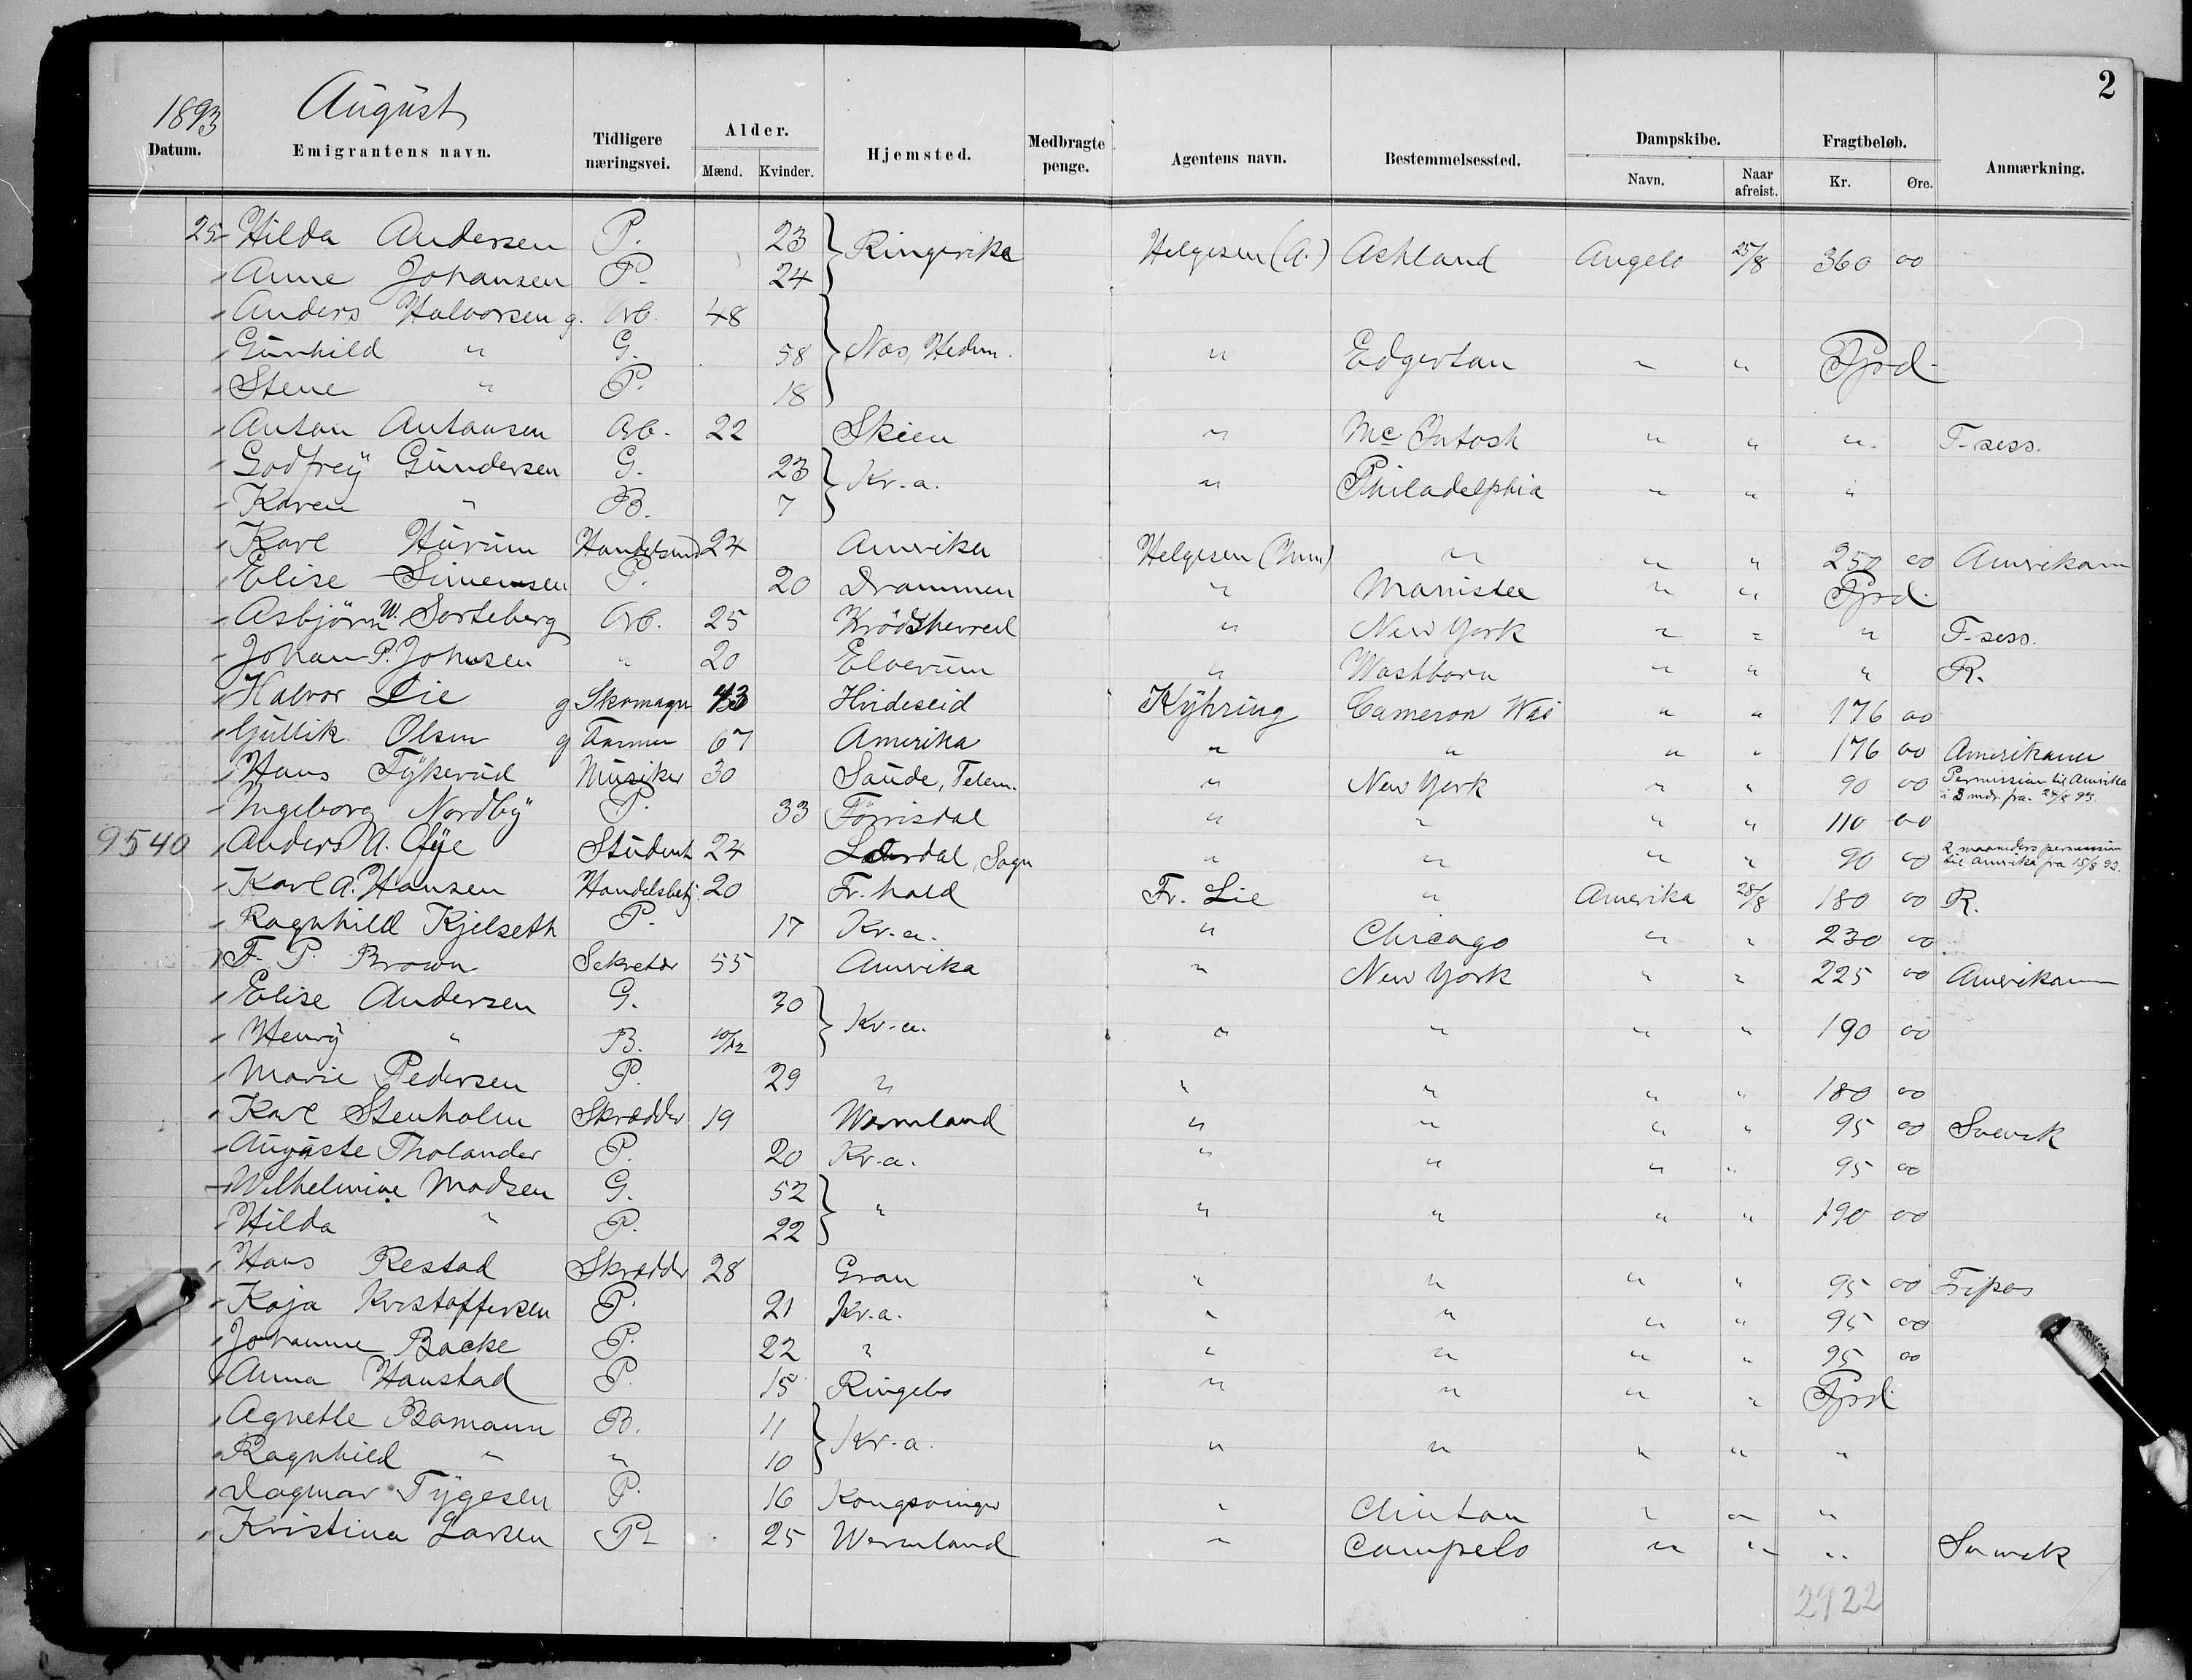 2
1893 August
Datum. Emigrantens navn. Tidligere næringsvei. Alder. Mænd. Kvinder. Hjemsted. Medbragte penge. Agentens navn. Bestemmelsessted. Dampskibe. Navn. Naar afreist. Fragtbeløb. Kr. Øre. Anmærkning.
25 Hilda Andersen P. 23 } Ringerike Helgesen (A.) Ashland Angelo 25/8 360 00
" Anne Johansen P. 24
" Anders Halvorsen g. Arb. 48
" Gunhild " G. 58 } Nes, Hedem. " Edgerton " " Pprd.
" Stene " P. 18
" Anton Antonsen Arb. 22 Skien " Mc Intosh " " " F-sess.
" Godfrey Gundersen G. 23 } Kr.a. " Philadelphia " " "
" Karen " B. 7
" Karl Hurum Handelsmd 24 Amerika Helgesen (Jun) " " " 250 00 Amerikaner
" Elise Simensen P. 20 Drammen " Manistee " " Pprd.
" Asbjörn W. Sorteberg Arb. 25 Krödsherred " New York " " " F-sess.
" Johan P. Johnsen " 20 Elverum " Washborn " " " R.
" Halvor Lie g Skomager 43 Hvideseid Kyhring Cameron Wis " " 176 00
" Gullik Olsen g Farmer 67 Amerika " " " " 176 00 Amerikaner
" Hans Fykerud Musiker 30 Saude, Telem. " New York " " 90 00 Permission til Amerika i 3 mdr. fra 24/8 93.
" Ingeborg Nordby P. 33 Förrisdal " " " " 110 00
9540 " Anders A. Øye Student 24 Lærdal, Sogn " " " " 90 00 2 maaneders permission til Amerika fra 15/8 93.
" Karl A. Hansen Handelsbetj. 20 Fr.hald Fr. Lie " Amerika 28/8 180 00 R.
" Ragnhild Kjelseth P. 17 Kr.a. " Chicago " " 230 00
" F. P. Brown Sekretær 55 Amerika " New York " " 225 00 Amerikaner
" Elise Andersen G. 30 } Kr.a. " " " " 190 00
" Henry " B. 10/12
" Marie Pedersen P. 29 " " " " " 180 00
" Karl Stenholm Skrædder 19 Wermland " " " " 95 00 Svensk
" Auguste Tholander P. 20 Kr.a. " " " " 95 00
" Wilhelmine Madsen G. 52 } " " " " " 190 00
" Hilda " P. 22
" Hans Restad Skrædder 28 Gran " " " " 95 00 Fripas
" Kaja Kristoffersen P. 21 Kr.a. " " " " 95 00
" Johanne Backe P. 22 " " " " " 95 00
" Anna Haustad P. 15 Ringebo " " " " Pprd.
" Agnethe Bomann B. 11 } Kr.a. " " " " "
" Ragnhild " " 10
" Dagmar Tygesen P. 16 Kongsvinger " Clinton " " "
" Kristina Larsen P. 25 Wermland " Campelo " " " Svensk
2922